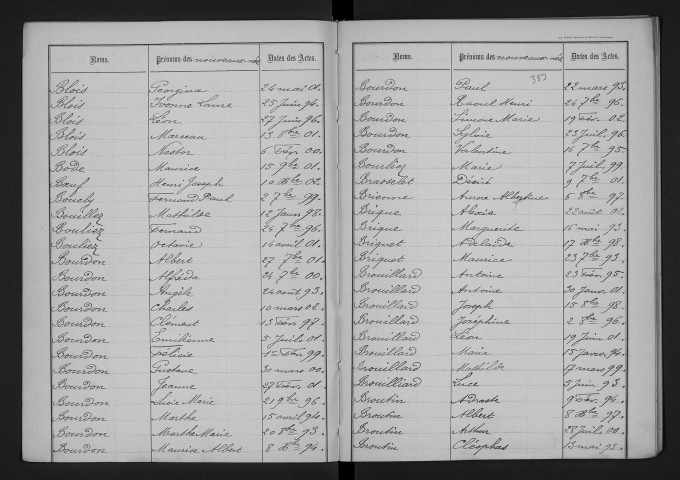 Noms. Prénoms des nouveaux-nés Dates des Actes.
Blois Georgina 24 mai 01.
Blois Yvonne Laure 25 Juin 94.
Blois Léon 27 Juin 96.
Blois Marceau 13 8bre 01.
Blois Nestor 6 Fév. 00.
Bode Maurice 15 9bre 01.
Bœuf Henri Joseph 10 Xbre 02.
Bouchy Fernand Paul 2 7bre 99.
Bouillez Mathilde 12 Janv 98.
Bouliez Fernand 24 7bre 96.
Bouliez Octavie 14 avril 01.
Bourdon Albert 27 7bre 01.
Bourdon Alfréda 24 7bre 00.
Bourdon Angèle 24 août 93.
Bourdon Charles 10 mars 02.
Bourdon Clément 13 Fév. 97.
Bourdon Emilienne 5 Juil. 01.
Bourdon Félicie 1er Fév. 99.
Bourdon Gustave 30 mars 00.
Bourdon Jeanne 27 Fév. 01.
Bourdon Lucie Marie 21 9bre 96.
Bourdon Marthe 15 avril 94.
Bourdon Marthe Marie 20 8bre 93.
Bourdon Maurice Albert 8 Xbre 94.
Noms. Prénoms des nouveaux-nés Dates des Actes.
383
Bourdon Paul 22 mars 93.
Bourdon Raoul Henri 24 7bre 96.
Bourdon Simone Marie 19 Fév. 02.
Bourdon Sylvie 23 Juil. 96.
Bourdon Valentine 16 7bre 95.
Bourliez Marie 7 Juil. 99.
Brasselet Désiré 9 7bre 01.
Brienne Anne Albertine 6 8bre 97.
Brique Alexis 22 août 02.
Brique Marguerite 16 mai 93.
Briquet Adélaïde 17 Xbre 98.
Briquet Maurice 23 7bre 93.
Brouillard Antoine 23 Fév. 95.
Brouillard Antoine 30 Janv. 01.
Brouillard Joseph 15 8bre 98.
Brouillard Joséphine 2 8bre 96.
Brouillard Léon 19 Juin 01.
Brouillard Maria 15 Janv. 94.
Brouillard Mathilde 17 mars 99.
Brouilliard Luce 5 Juin 93.
Broutin Adraste 9 Fév. 94.
Broutin Albert 8 Xbre 97.
Broutin Arthur 28 Juil. 00.
Broutin Cléophas 13 mai 93.